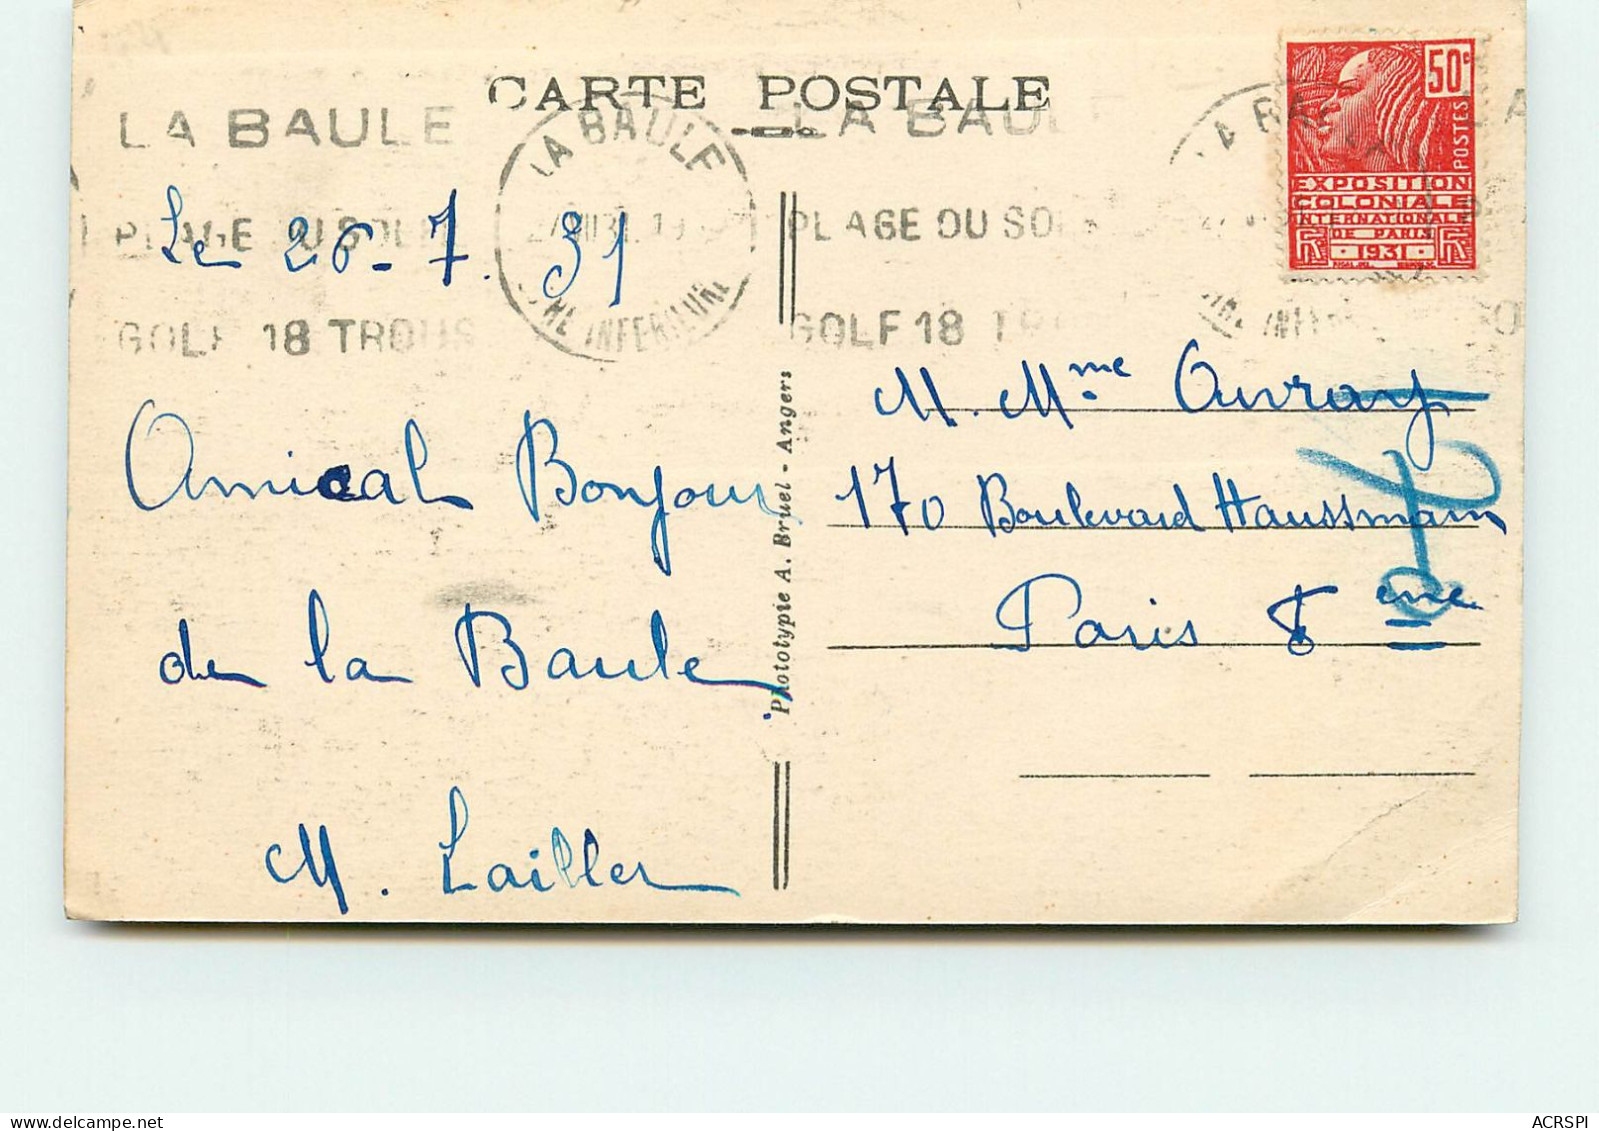 CARTE POSTALE
LA BAULE
PLAGE DU SOLEIL
GOLF 18 TROUS
LA BAULE
LOIRE INFERIEURE
LA BAULE
PLAGE DU SO
GOLF 18 TR
LA BA
50c
POSTES
EXPOSITION
COLONIALE
INTERNATIONALE
DE PARIS
1931
RF RF
Le 26-7. 31
Amical Bonjour
de la Baule
M. Lailler
Phototypie A. Bruel - Angers
M. Mme Auvray
170 Boulevard Haussmann
Paris 8eme
ACRSPI